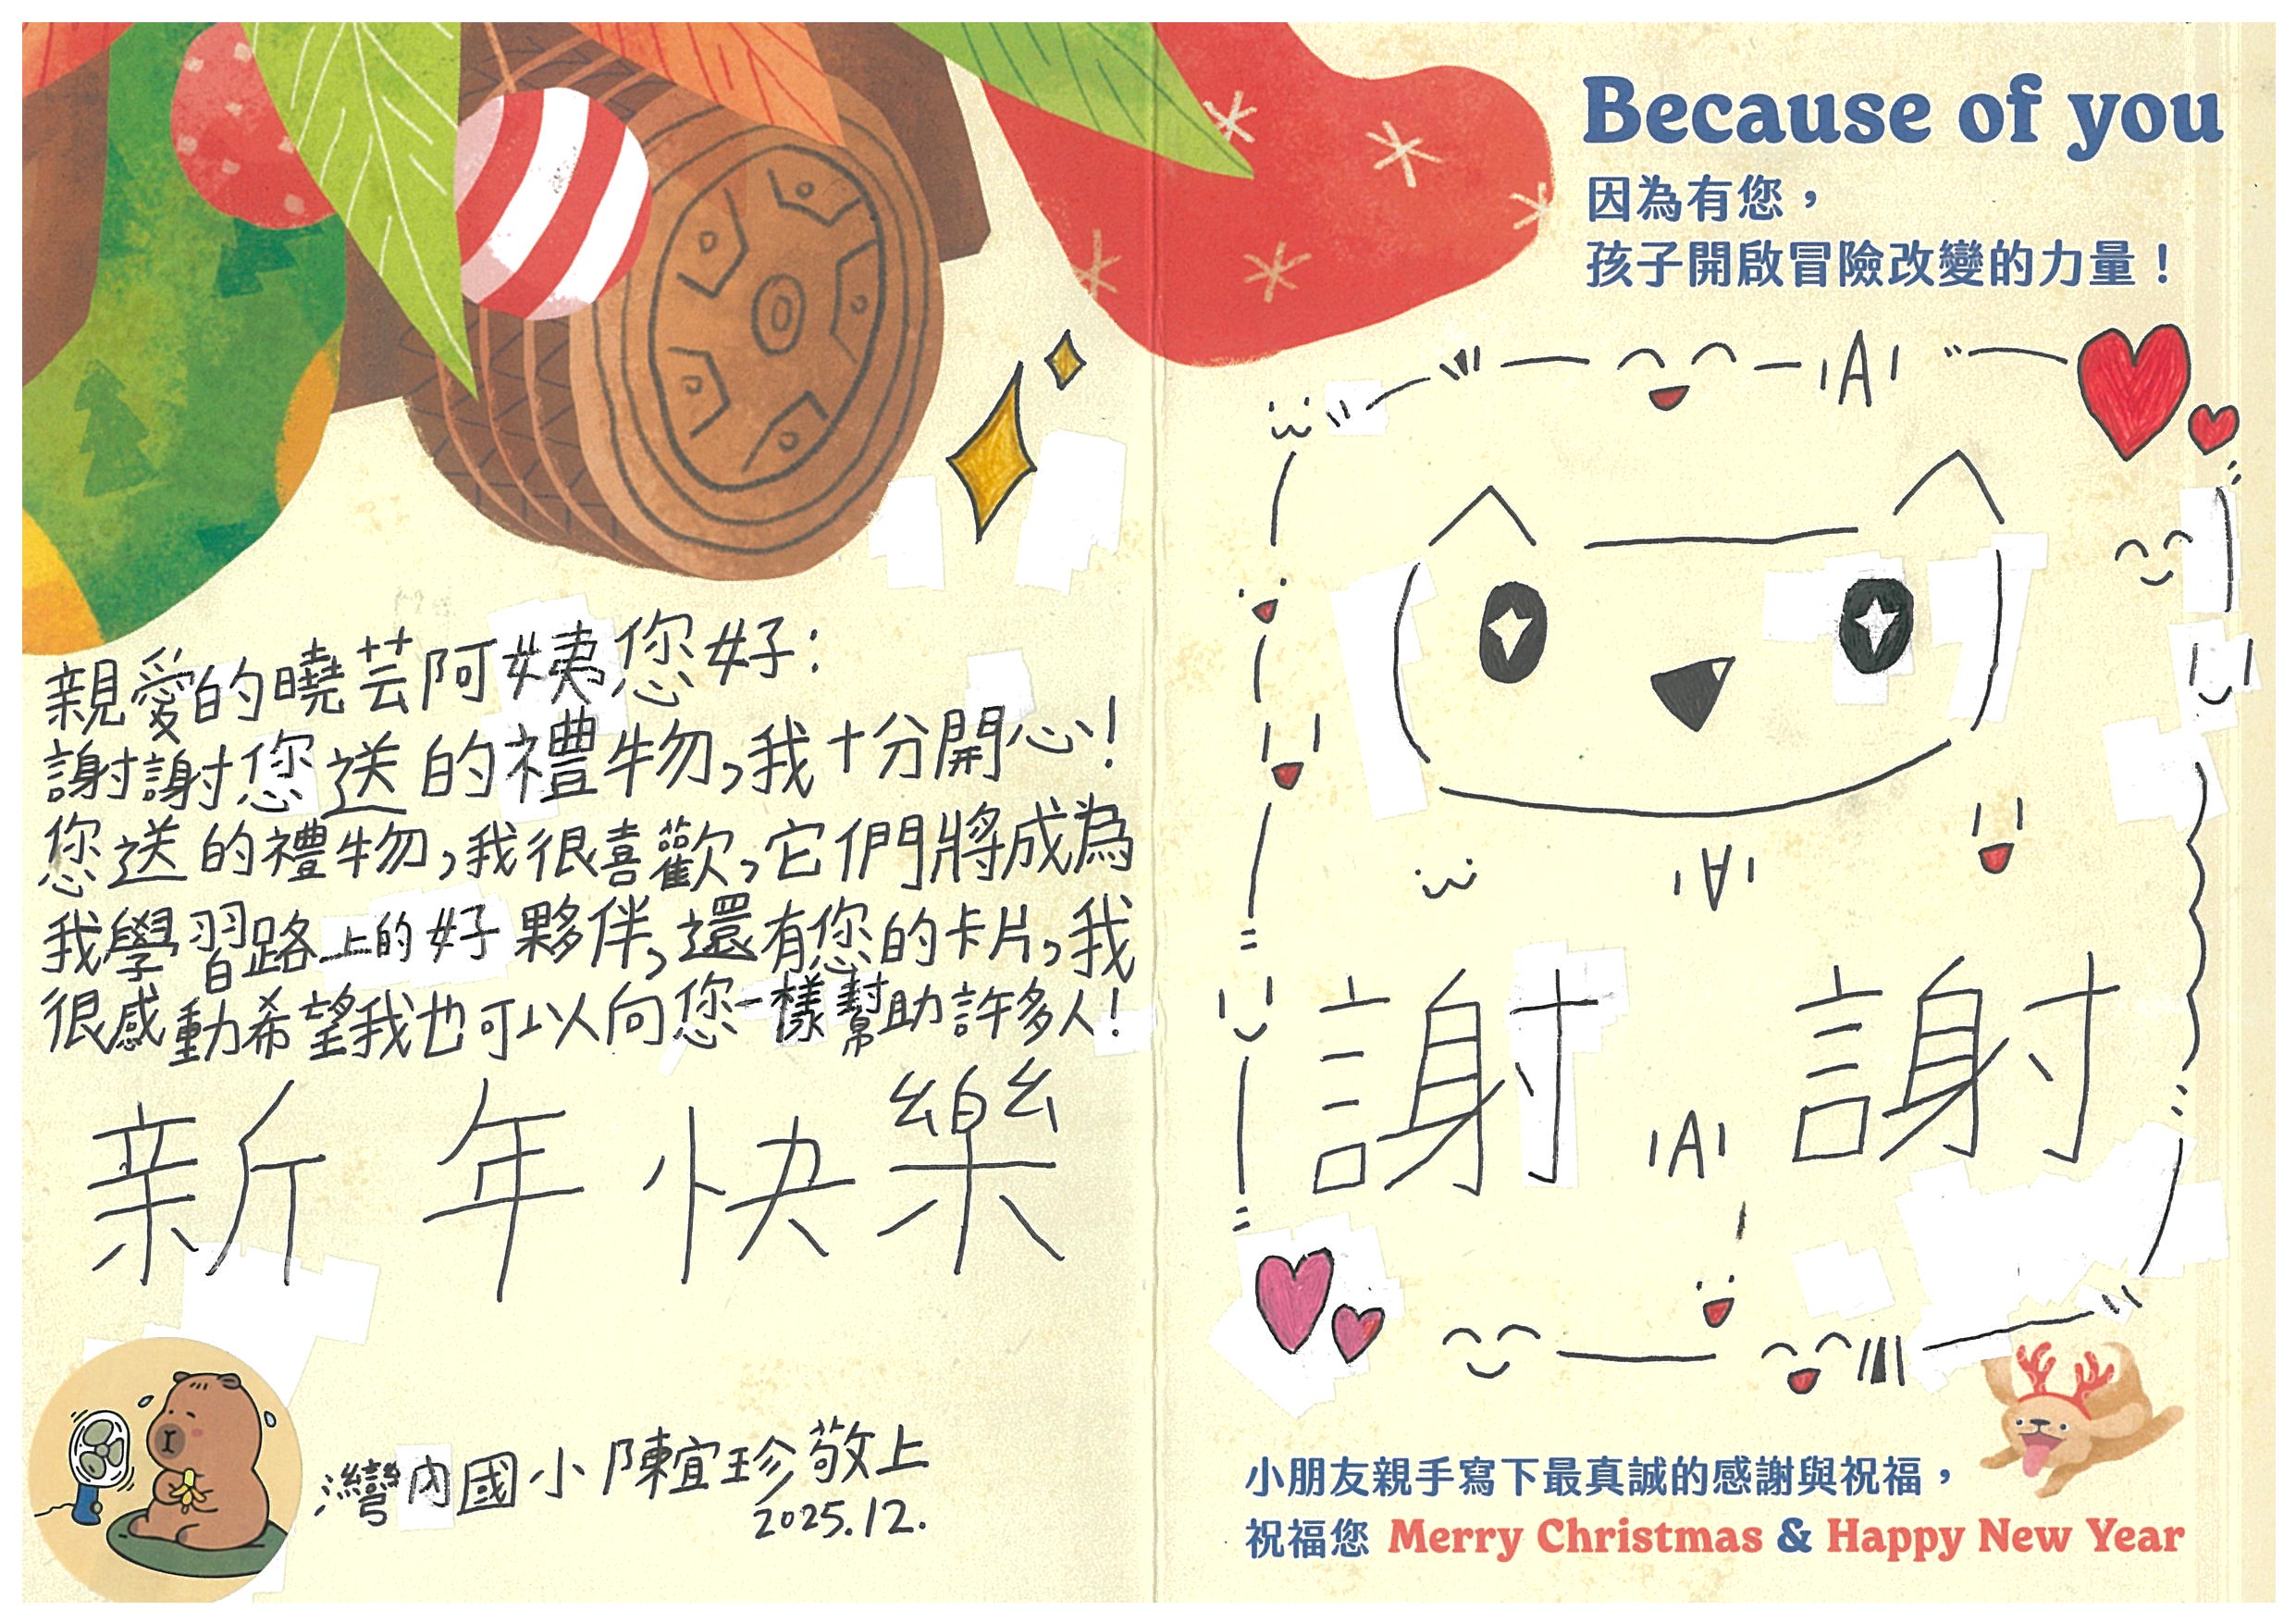 親愛的曉芸阿姨您好：
謝謝您送的禮物,我十分開心!
您送的禮物,我很喜歡,它們將成為
我學習路上的好夥伴,還有您的卡片,我
很感動希望我也可以向您一樣幫助許多人!
新年快樂
灣內國小陳宜珍敬上
2025.12.
Because of you
因為有您，
孩子開啟冒險改變的力量！
謝謝
小朋友親手寫下最真誠的感謝與祝福，
祝福您 Merry Christmas & Happy New Year